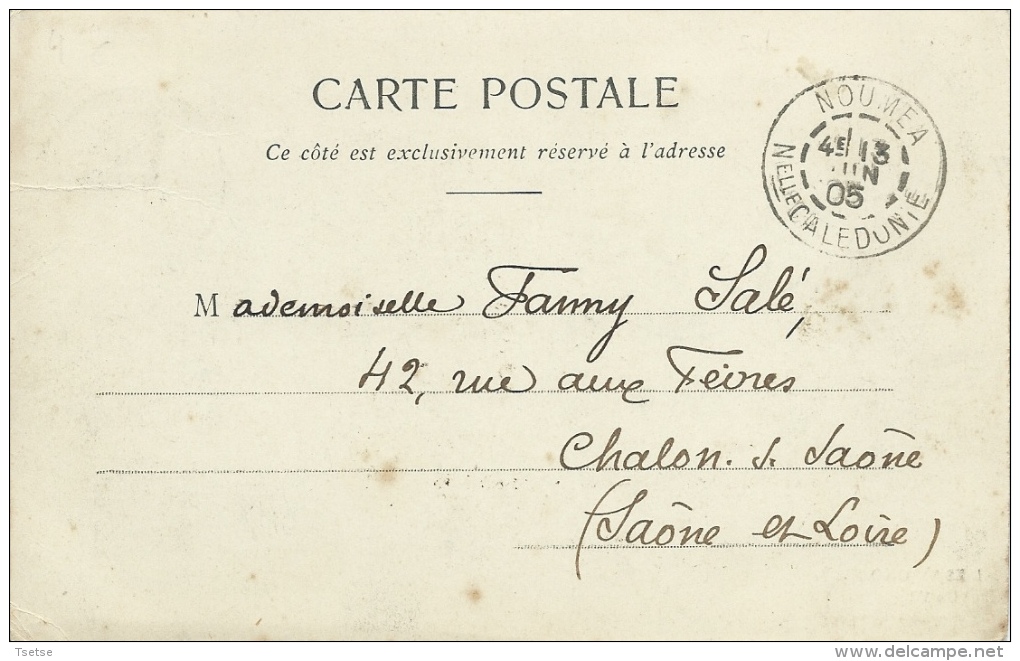 CARTE POSTALE
Ce côté est exclusivement réservé à l'adresse
NOUMEA
4E 13
JUIN
05
NELLE CALEDONIE
Mademoiselle Fanny Salé,
42, rue aux Fèvres
Chalon. s. Saône
(Saône et Loire)
Tsetse
www.delcampe.net